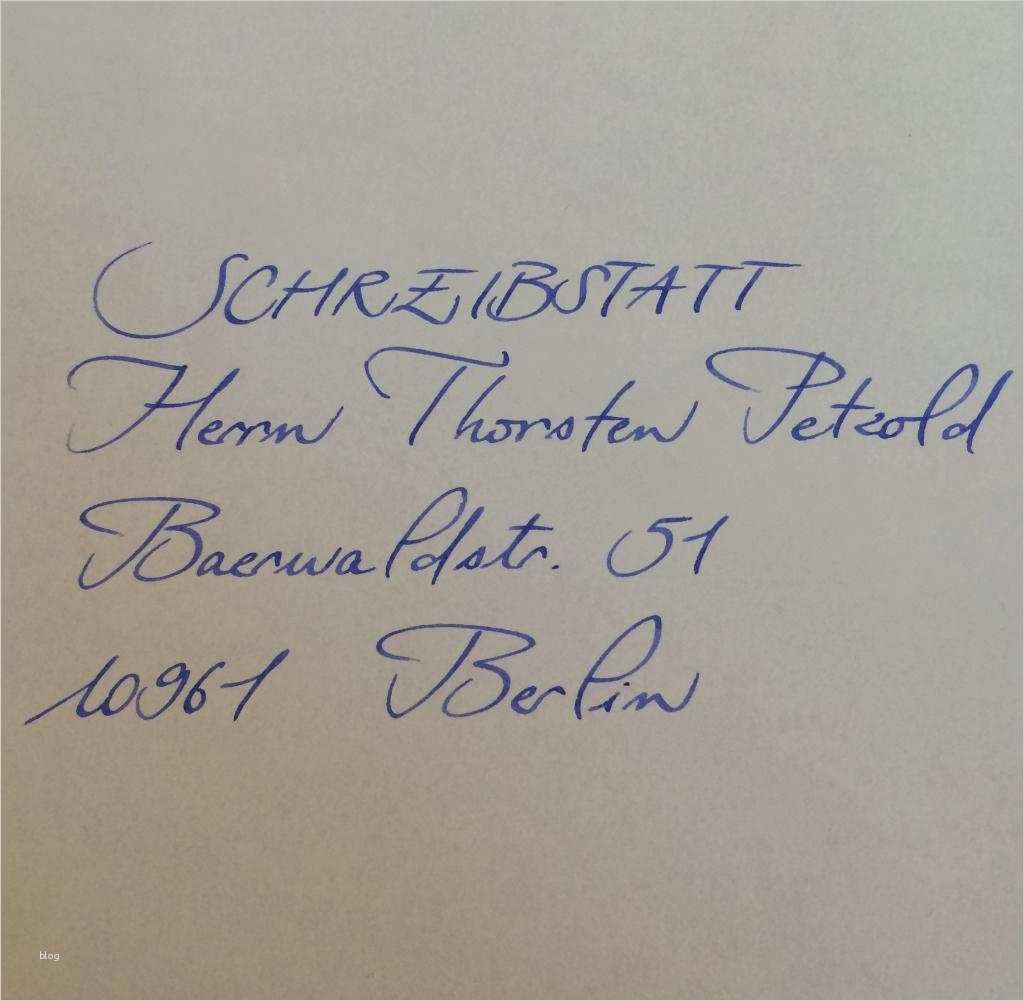 SCHREIBSTATT
Herrn Thorsten Petzold
Baerwaldstr. 51
10961 Berlin
blog